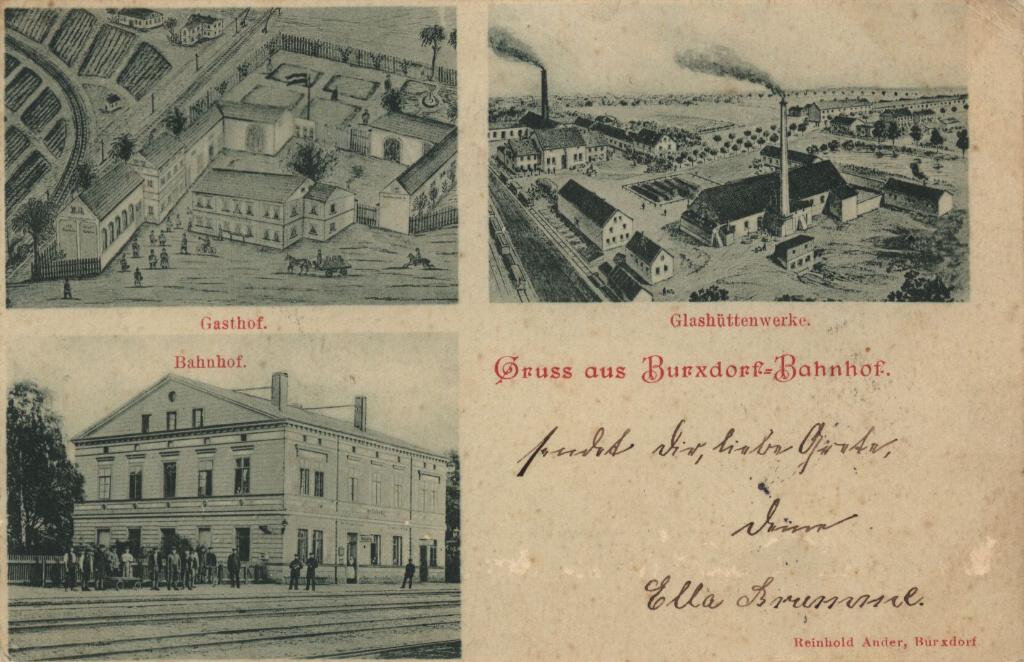 Gasthof.
Glashüttenwerke.
Bahnhof.
Gruss aus Burxdorf-Bahnhof.
sendet Dir, liebe Grete,
Deine
Ella Brummel.
Reinhold Ander, Burxdorf